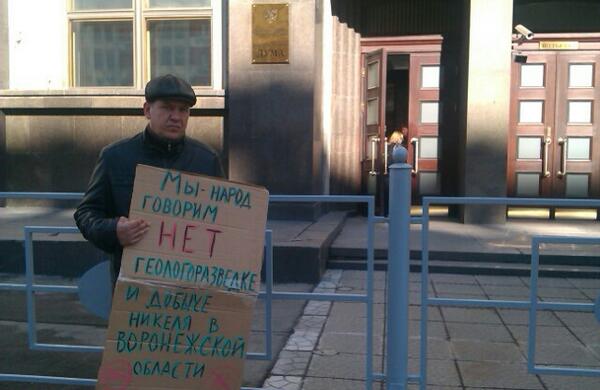 ДУМА
МЫ-НАРОД
ГОВОРИМ
НЕТ
ГЕОЛОГОРАЗВЕДКЕ
И ДОБЫЧЕ
НИКЕЛЯ В
ВОРОНЕЖСКОЙ
ОБЛАСТИ